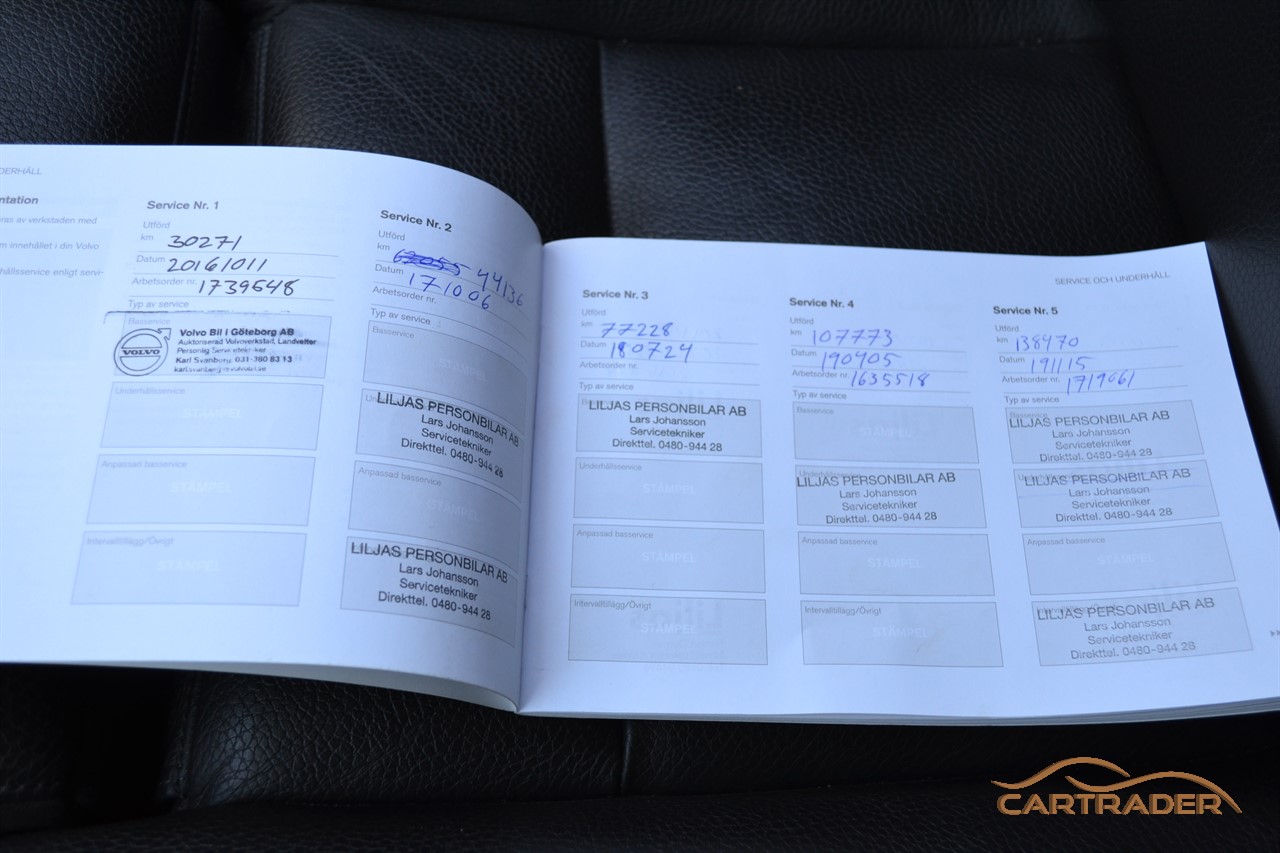 DERHÅLL
ntation
ras av verkstaden med
m innehållet i din Volvo
hållsservice enligt servi-
Service Nr. 1
Utförd
km 30271
Datum 20161011
Arbetsorder nr. 1739648
Typ av service
Basservice
VOLVO
Volvo Bil i Göteborg AB
Auktoriserad Volvoverkstad, Landvetter
Personlig Servicetekniker
Karl Svanborg, 031-380 83 13
Underhållsservice
STÄMPEL
Anpassad basservice
STÄMPEL
Intervalltillägg/Övrigt
STÄMPEL
Service Nr. 2
Utförd
km 62055 44136
Datum 171006
Arbetsorder nr.
Typ av service
Basservice
STÄMPEL
LILJAS PERSONBILAR AB
Lars Johansson
Servicetekniker
Direkttel. 0480-944 28
Anpassad basservice
STÄMPEL
LILJAS PERSONBILAR AB
Lars Johansson
Servicetekniker
Direkttel. 0480-944 28
SERVICE OCH UNDERHÅLL
Service Nr. 3
Utförd
km 77228
Datum 180724
Arbetsorder nr.
Typ av service
LILJAS PERSONBILAR AB
Lars Johansson
Servicetekniker
Direkttel. 0480-944 28
Underhållsservice
STÄMPEL
Anpassad basservice
STÄMPEL
Intervalltillägg/Övrigt
STÄMPEL
Service Nr. 4
Utförd
km 107773
Datum 190405
Arbetsorder nr. 1635518
Typ av service
Basservice
STÄMPEL
Underhållsservice
LILJAS PERSONBILAR AB
Lars Johansson
Servicetekniker
Direkttel. 0480-944 28
Anpassad basservice
STÄMPEL
Intervalltillägg/Övrigt
STÄMPEL
Service Nr. 5
Utförd
km 138470
Datum 191115
Arbetsorder nr. 1719661
Typ av service
Basservice
LILJAS PERSONBILAR AB
Lars Johansson
Servicetekniker
Direkttel. 0480-944 28
LILJAS PERSONBILAR AB
Lars Johansson
Servicetekniker
Direkttel. 0480-944 28
Anpassad basservice
STÄMPEL
Intervalltillägg/Övrigt
LILJAS PERSONBILAR AB
Lars Johansson
Servicetekniker
Direkttel. 0480-944 28
CARTRADER